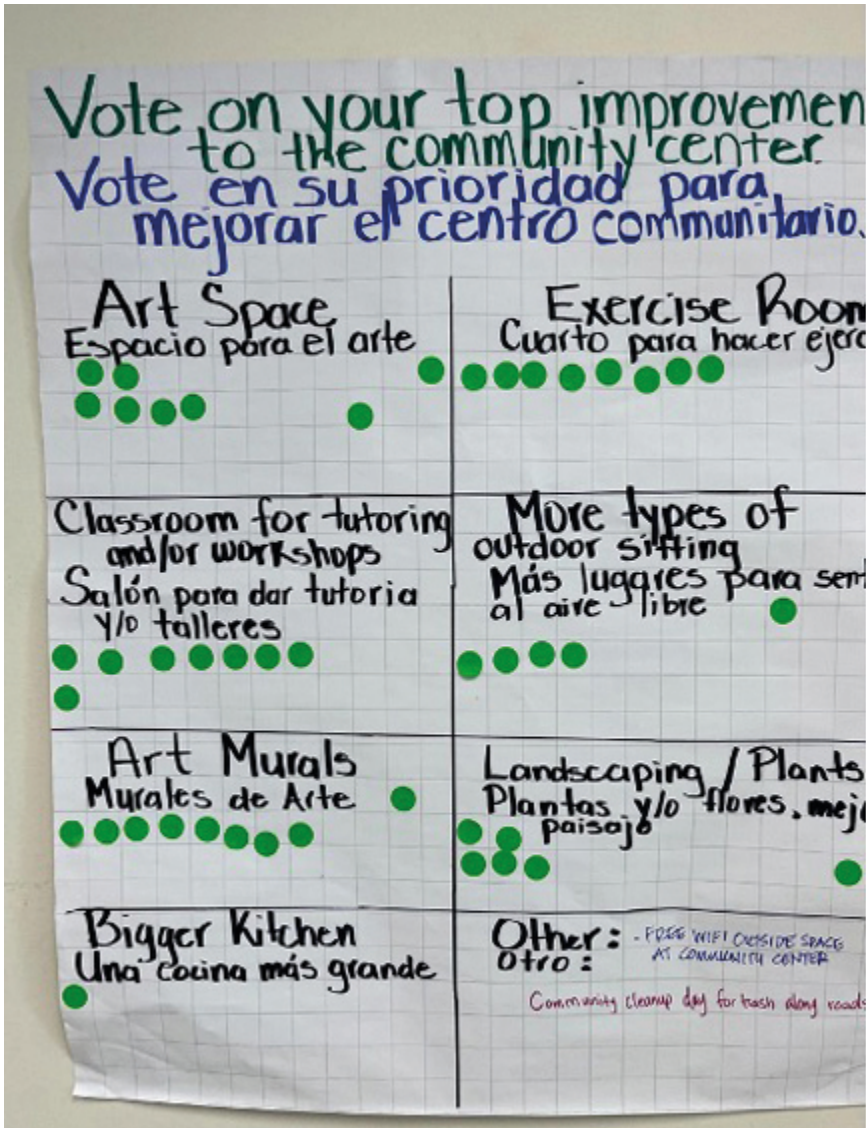 Vote on your top improvemen
to the community center.
Vote en su prioridad para
mejorar el centro communitario.
Art Space
Espacio para el arte
Exercise Room
Cuarto para hacer ejerc
Classroom for tutoring
and/or workshops
Salón para dar tutoria
y/o talleres
More types of
outdoor sitting
Más lugares para sent
al aire libre
Art Murals
Murales de Arte
Landscaping / Plants
Plantas y/o flores, mejo
paisajo
Bigger Kitchen
Una cocina más grande
Other:
Otro:
- FREE WIFI OUTSIDE SPACE
AT COMMUNITY CENTER
Community cleanup day for trash along roads